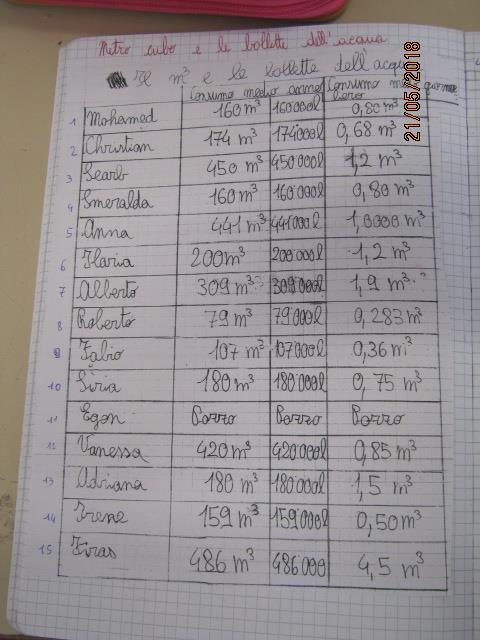 Metro cubo e le bollette dell'acqua
Il m³ e le bollette dell'acqua
Consumo medio annuo Consumo medio giornaliero
1 Mohamed 160 m³ 160000l 0,80 m³
2 Christian 174 m³ 174000l 0,68 m³
3 450 m³ 450000l 1,2 m³
4 Smeralda 160 m³ 160000l 0,80 m³
5 Anna 441 m³ 441000l 1,0000 m³
6 Ilaria 200 m³ 200'000l 1,2 m³
7 Alberto 309 m³ 309000l 1,9 m³
8 Roberto 79 m³ 79000l 0,283 m³
9 Fabio 107 m³ 107000l 0,36 m³
10 Siria 180 m³ 180'000l 0,75 m³
11 Egon Pozzo Pozzo Pozzo
12 Vanessa 420 m³ 420000l 0,85 m³
13 Adriana 180 m³ 180'000l 1,5 m³
14 Irene 159 m³ 159000l 0,50 m³
15 Firas 486 m³ 486'000 4,5 m³
21/05/2018